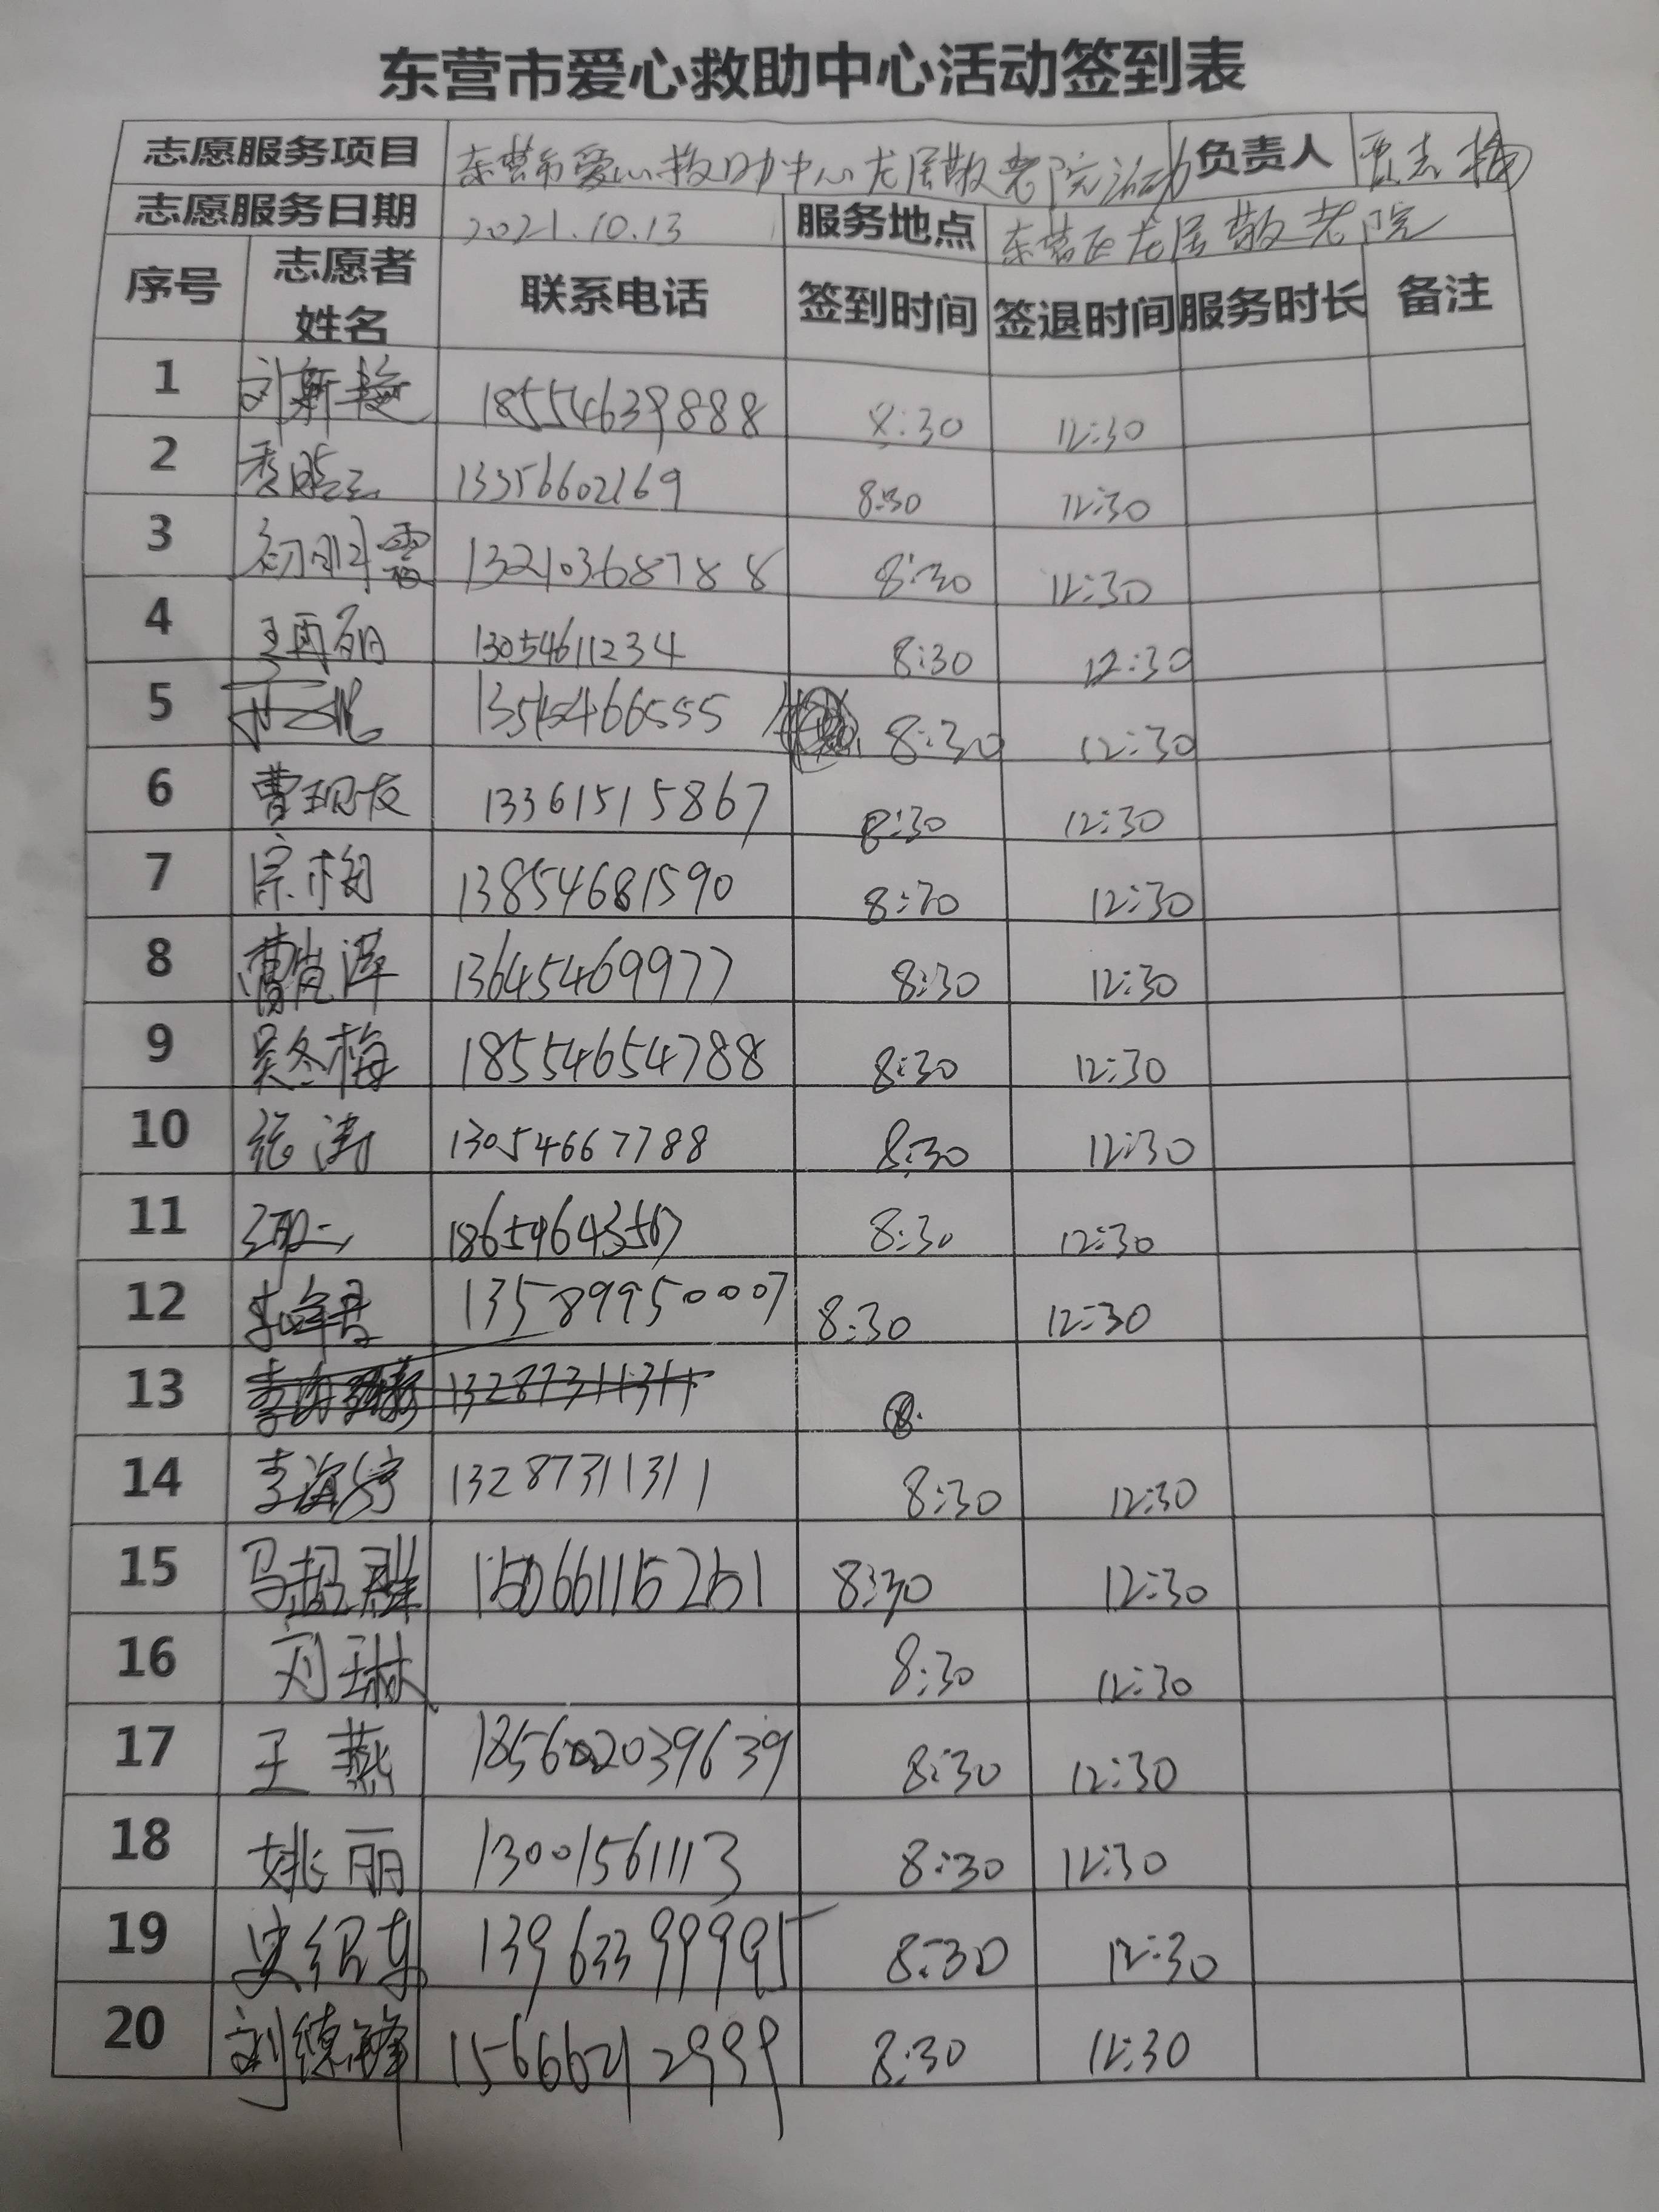 东营市爱心救助中心活动签到表
志愿服务项目 东营市爱心救助中心龙居敬老院活动 负责人
志愿服务日期 2021.10.13 服务地点 东营区龙居敬老院
序号 志愿者姓名 联系电话 签到时间 签退时间 服务时长 备注
1 刘新艳 18554639888 8:30 12:30
2 13356602169 8:30 12:30
3 初明霞 13210368788 8:30 12:30
4 王再丽 13054611234 8:30 12:30
5 8:30 12:30
6 曹现友 13361515867 8:30 12:30
7 宗梅 13854681590 8:30 12:30
8 13645469977 8:30 12:30
9 吴冬梅 18554654788 8:30 12:30
10 张涛 13054667788 8:30 12:30
11 8:30 12:30
12 13589950007 8:30 12:30
13 13287311311 8
14 李海、 13287311311 8:30 12:30
15 马超群 15066115251 8:30 12:30
16 刘琳 8:30 12:30
17 王燕 8:30 12:30
18 姚丽 13001561113 8:30 12:30
19 史绍东 13963399995 8:30 12:30
20 刘德锋 15666212999 8:30 12:30